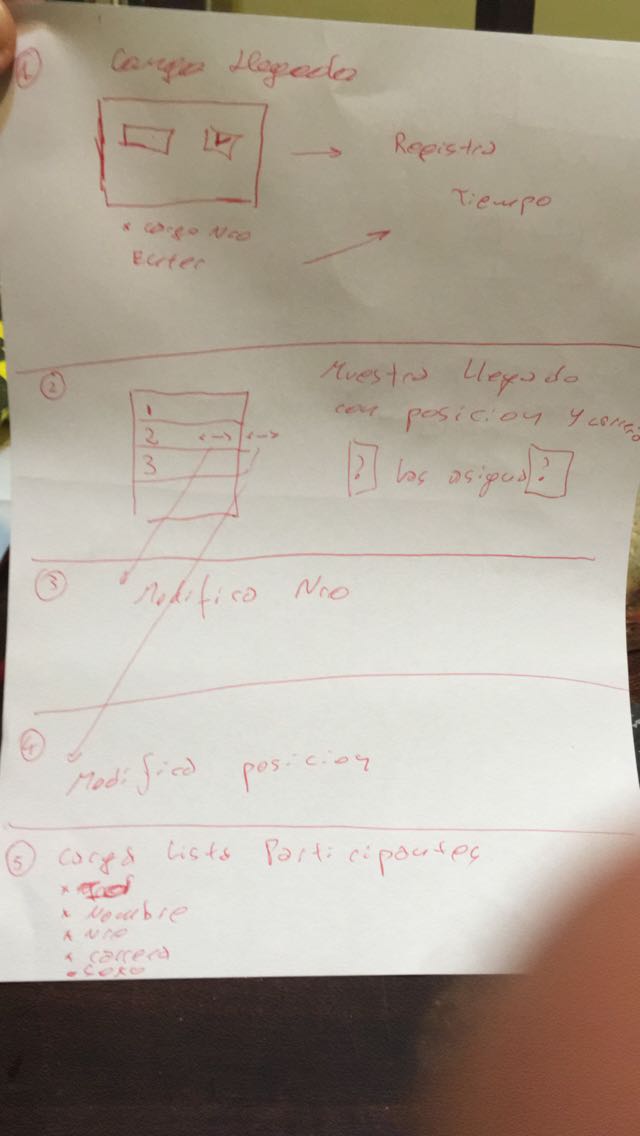 1 Carga Llegada
Registra
Tiempo
* Cargo Nro
Enter
2
Muestra Llegada
con posicion y
1
2 <-> <->
3
? las asigna ?
3 Modifico Nro
4
Modifico posicion
5 Carga Lista Participantes
* Nombre
* Nro
* Carrera
* Sexo